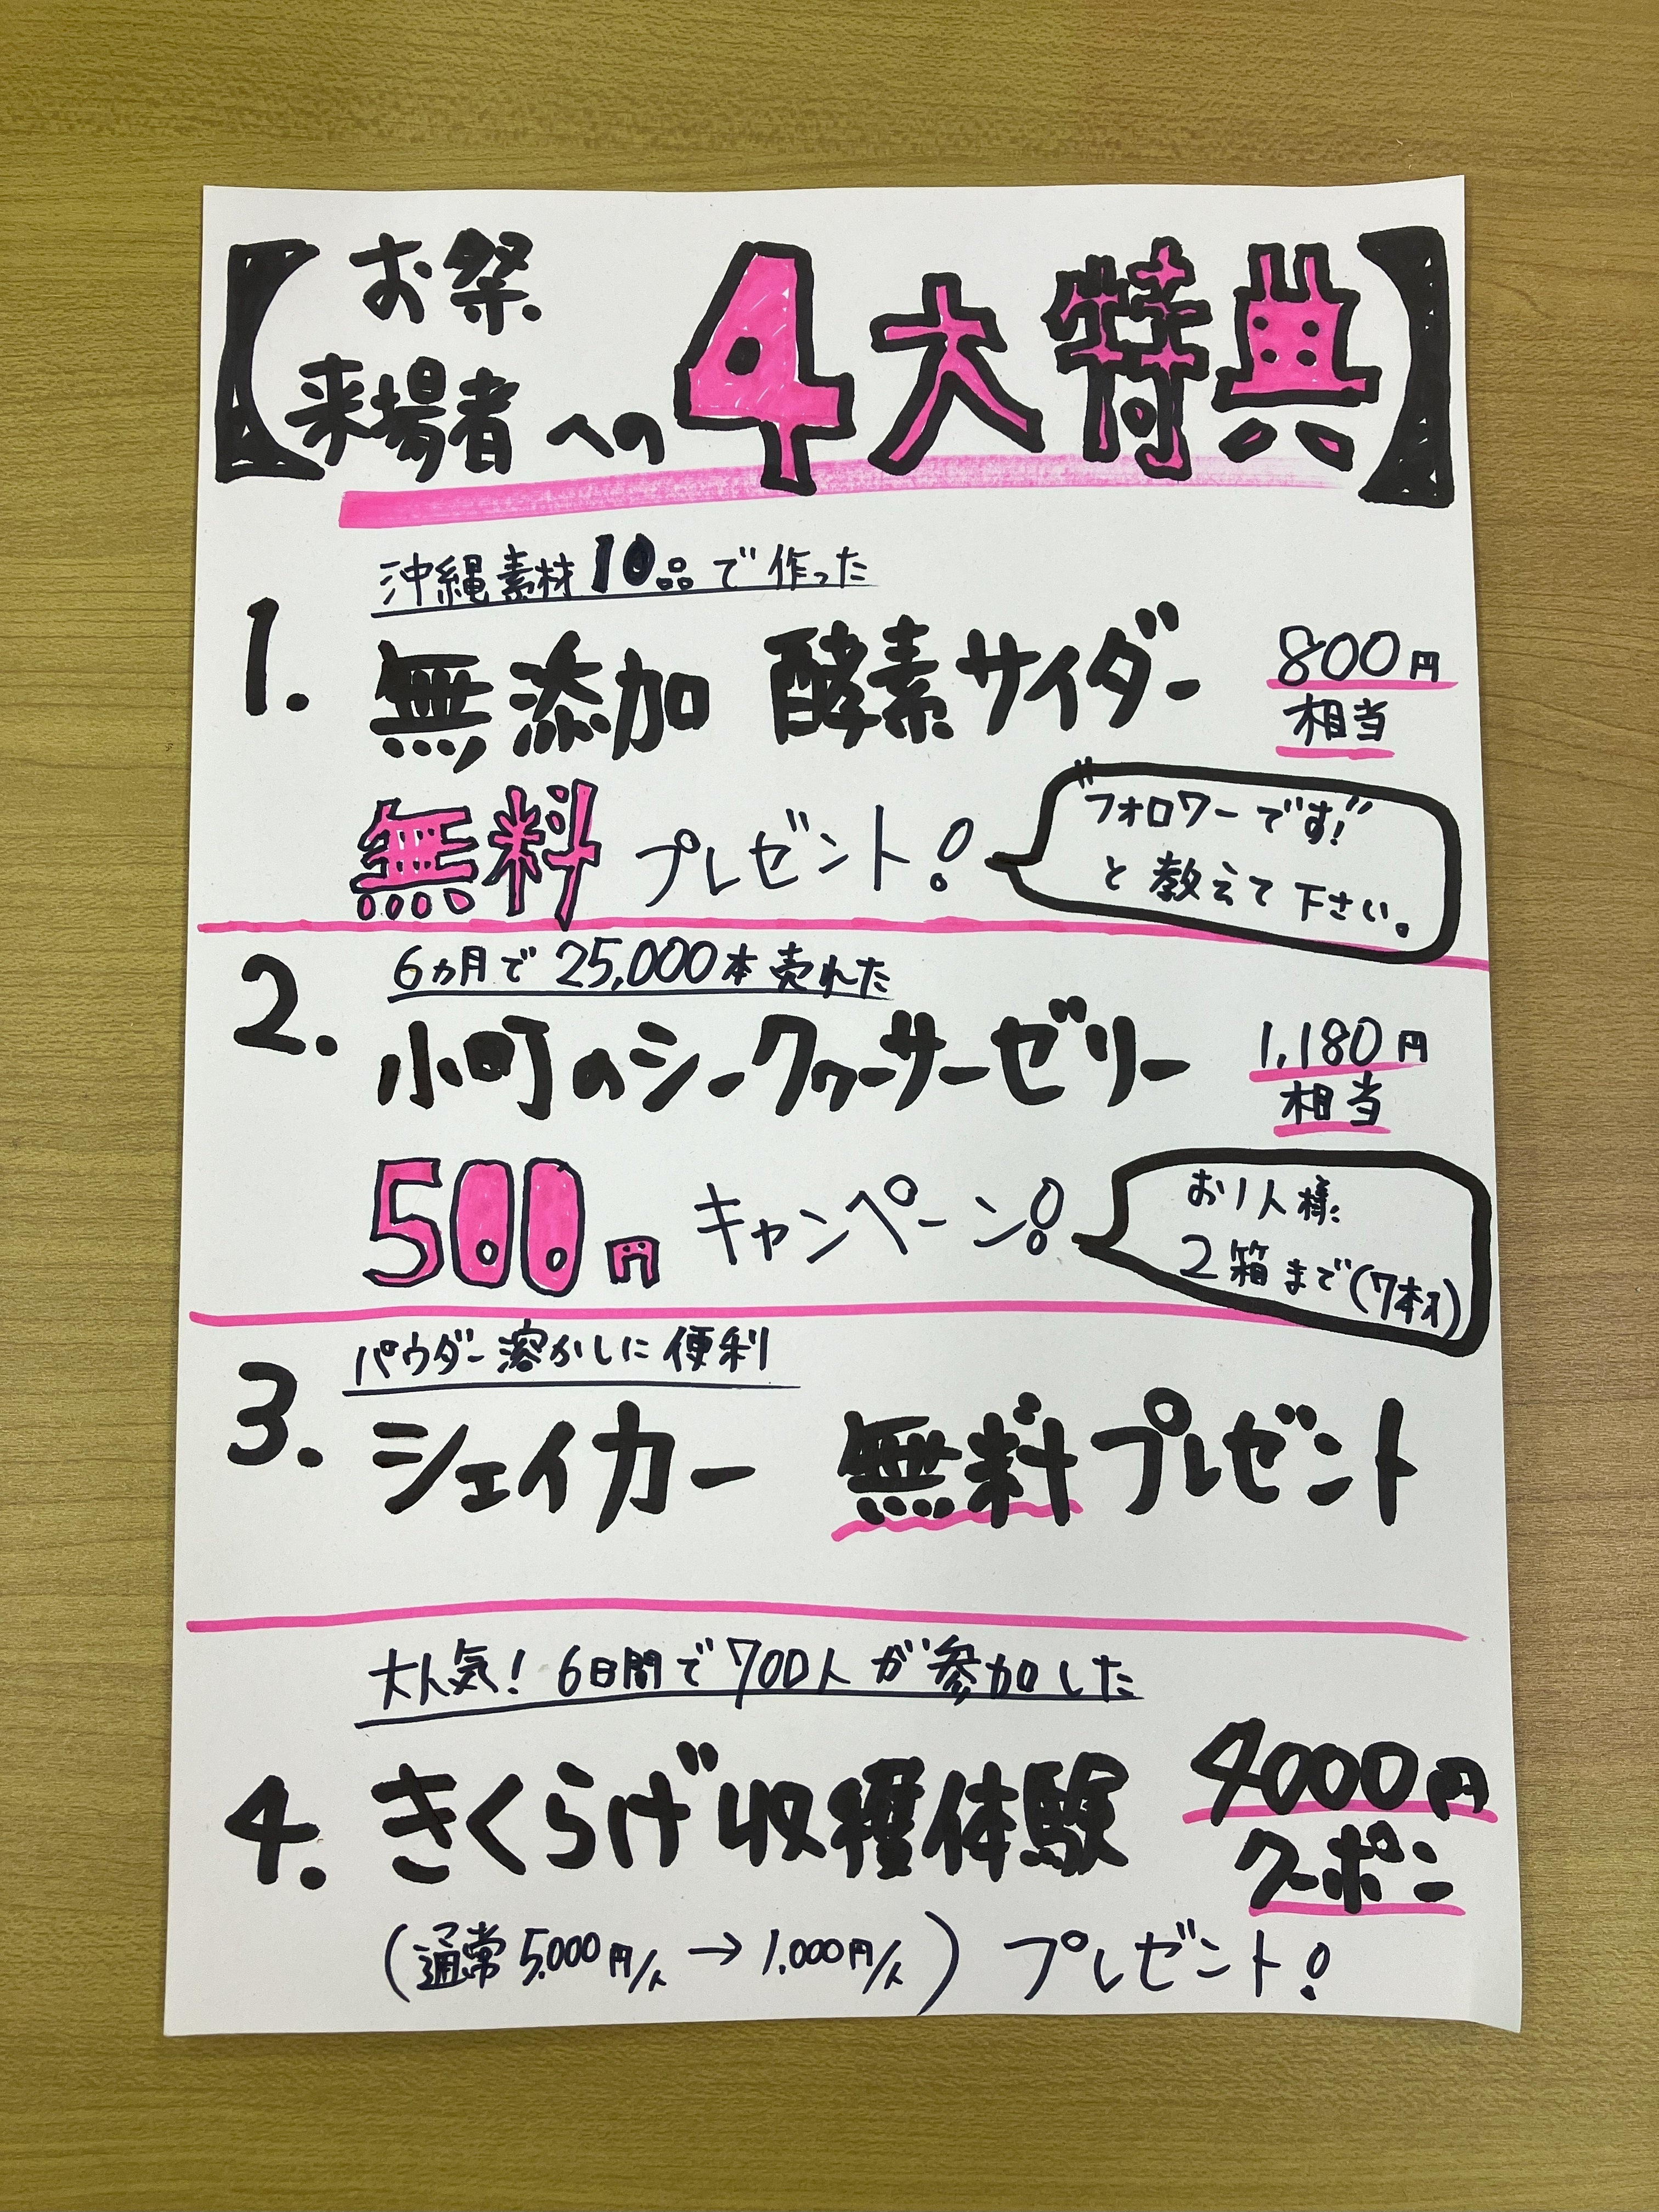 【お祭
来場者への4大特典】
沖縄素材10品で作った
1. 無添加 酵素サイダー 800円
相当
無料プレゼント!
"フォロワーです!"
と教えて下さい。
6ヵ月で25,000本売れた
2. 小町のシークヮーサーゼリー 1,180円
相当
500円キャンペーン!
お1人様
2箱まで(7本入)
パウダー溶かしに便利
3. シェイカー 無料プレゼント
大人気! 6日間で700人が参加した
4. きくらげ収穫体験 4000円
クーポン
(通常5,000円/人→1,000円/人) プレゼント!